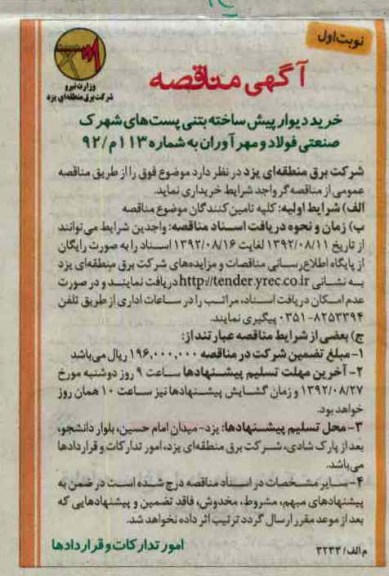 نوبت اول
وزارت نیرو
شرکت برق منطقه‌ای یزد
آگهی مناقصه
خرید دیوار پیش ساخته بتنی پست‌های شهرک
صنعتی فولاد و مهر آوران به شماره ۱۱۳م/۹۲
شرکت برق منطقه‌ای یزد در نظر دارد موضوع فوق را از طریق مناقصه
عمومی از مناقصه‌گر واجد شرایط خریداری نماید.
الف) شرایط اولیه: کلیه تامین کنندگان موضوع مناقصه
ب) زمان و نحوه دریافت اسناد مناقصه: واجدین شرایط می‌توانند
از تاریخ ۱۳۹۲/۰۸/۱۱ لغایت ۱۳۹۲/۰۸/۱۶ اسناد را به صورت رایگان
از پایگاه اطلاع‌رسانی مناقصات و مزایده‌های شرکت برق منطقه‌ای یزد
به نشانی http://tender.yrec.co.ir دریافت نمایند و در صورت
عدم امکان دریافت اسناد، مراتب را در ساعات اداری از طریق تلفن
۰۳۵۱-۸۲۵۳۳۹۴ پیگیری نمایند.
ج) بعضی از شرایط مناقصه عبارتند از:
۱- مبلغ تضمین شرکت در مناقصه ۱۹۶,۰۰۰,۰۰۰ ریال می‌باشد
۲- آخرین مهلت تسلیم پیشنهادها ساعت ۹ روز دوشنبه مورخ
۱۳۹۲/۰۸/۲۷ و زمان گشایش پیشنهادها نیز ساعت ۱۰ همان روز
خواهد بود.
۳- محل تسلیم پیشنهادها: یزد-میدان امام حسین، بلوار دانشجو،
بعد از پارک شادی، شرکت برق منطقه‌ای یزد، امور تدارکات و قراردادها
می‌باشد.
۴- سایر مشخصات در اسناد مناقصه درج شده است در ضمن به
پیشنهادهای مبهم، مشروط، مخدوش، فاقد تضمین و پیشنهادهایی که
بعد از موعد مقرر ارسال گردد ترتیب اثر داده نخواهد شد.
امور تدارکات و قراردادها
م الف/ ۳۲۳۳